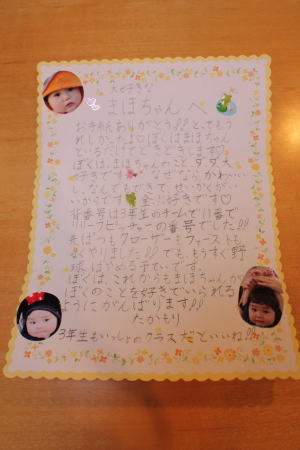 大好きな
まほちゃんへ
お手がみありがとう!!とってもう
れしかったよ♡ぼくはまほちゃんと
いるだけでドキドキします♡
ぼくは、まほちゃんのこと、ダダ大
好きです なぜなら、かわいい
し、なんでもできて、せいかくがい
いからです 全ぶ好きです♡
背番号は3年生のチームで11番で
リリーフピッチャーの番号でした!!
先ぱつもクローザーもファーストも
よくやりました!!でも、もうすぐ野
球はやめる予ていです。
ぼくは、これからもまほちゃんが
ぼくのことを好きでいられる
ようにがんばります!!
たかもり
3年生もいっしょのクラスだといいね!!